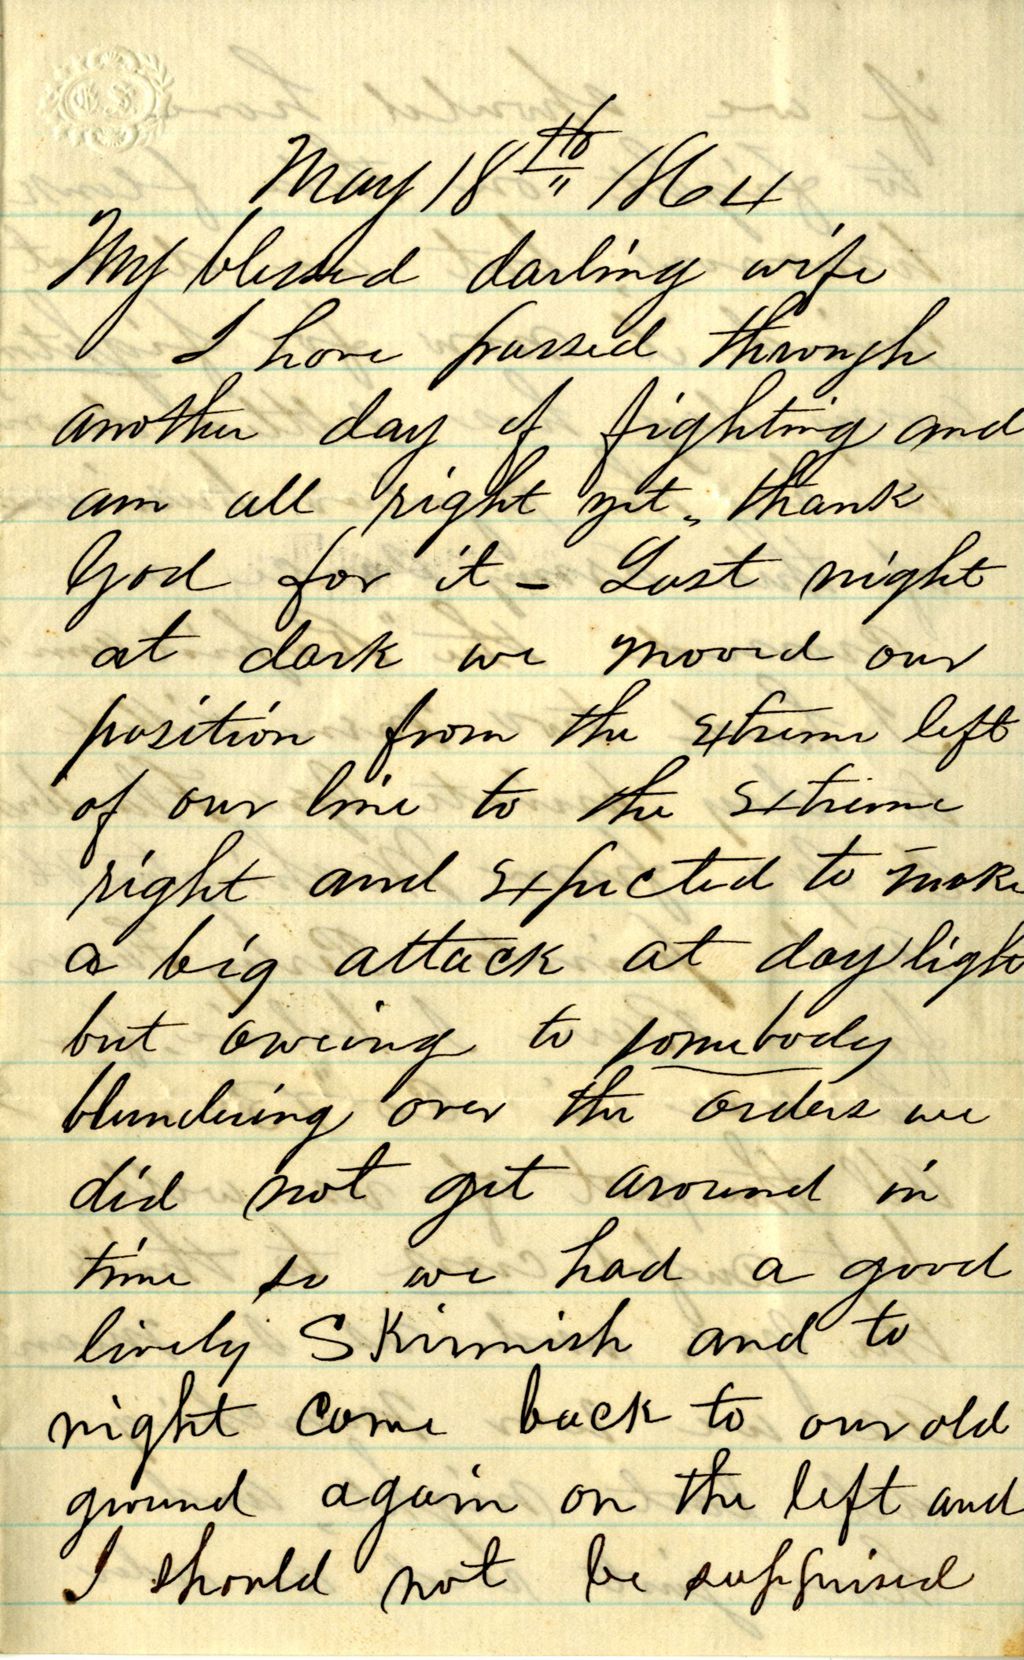 May 18th 1864
My blessed darling wife
I have passed through
another day of fighting and
am all right yet, thank
God for it – Last night
at dark we mooved our
position from the extreme left
of our line to the extreme
right and expected to make
a big attack at daylight
but oweing to somebody
blundering over the orders we
did not get around in
time so we had a good
lively Skirmish and to
night came back to our old
ground again on the left and
I should not be supprised